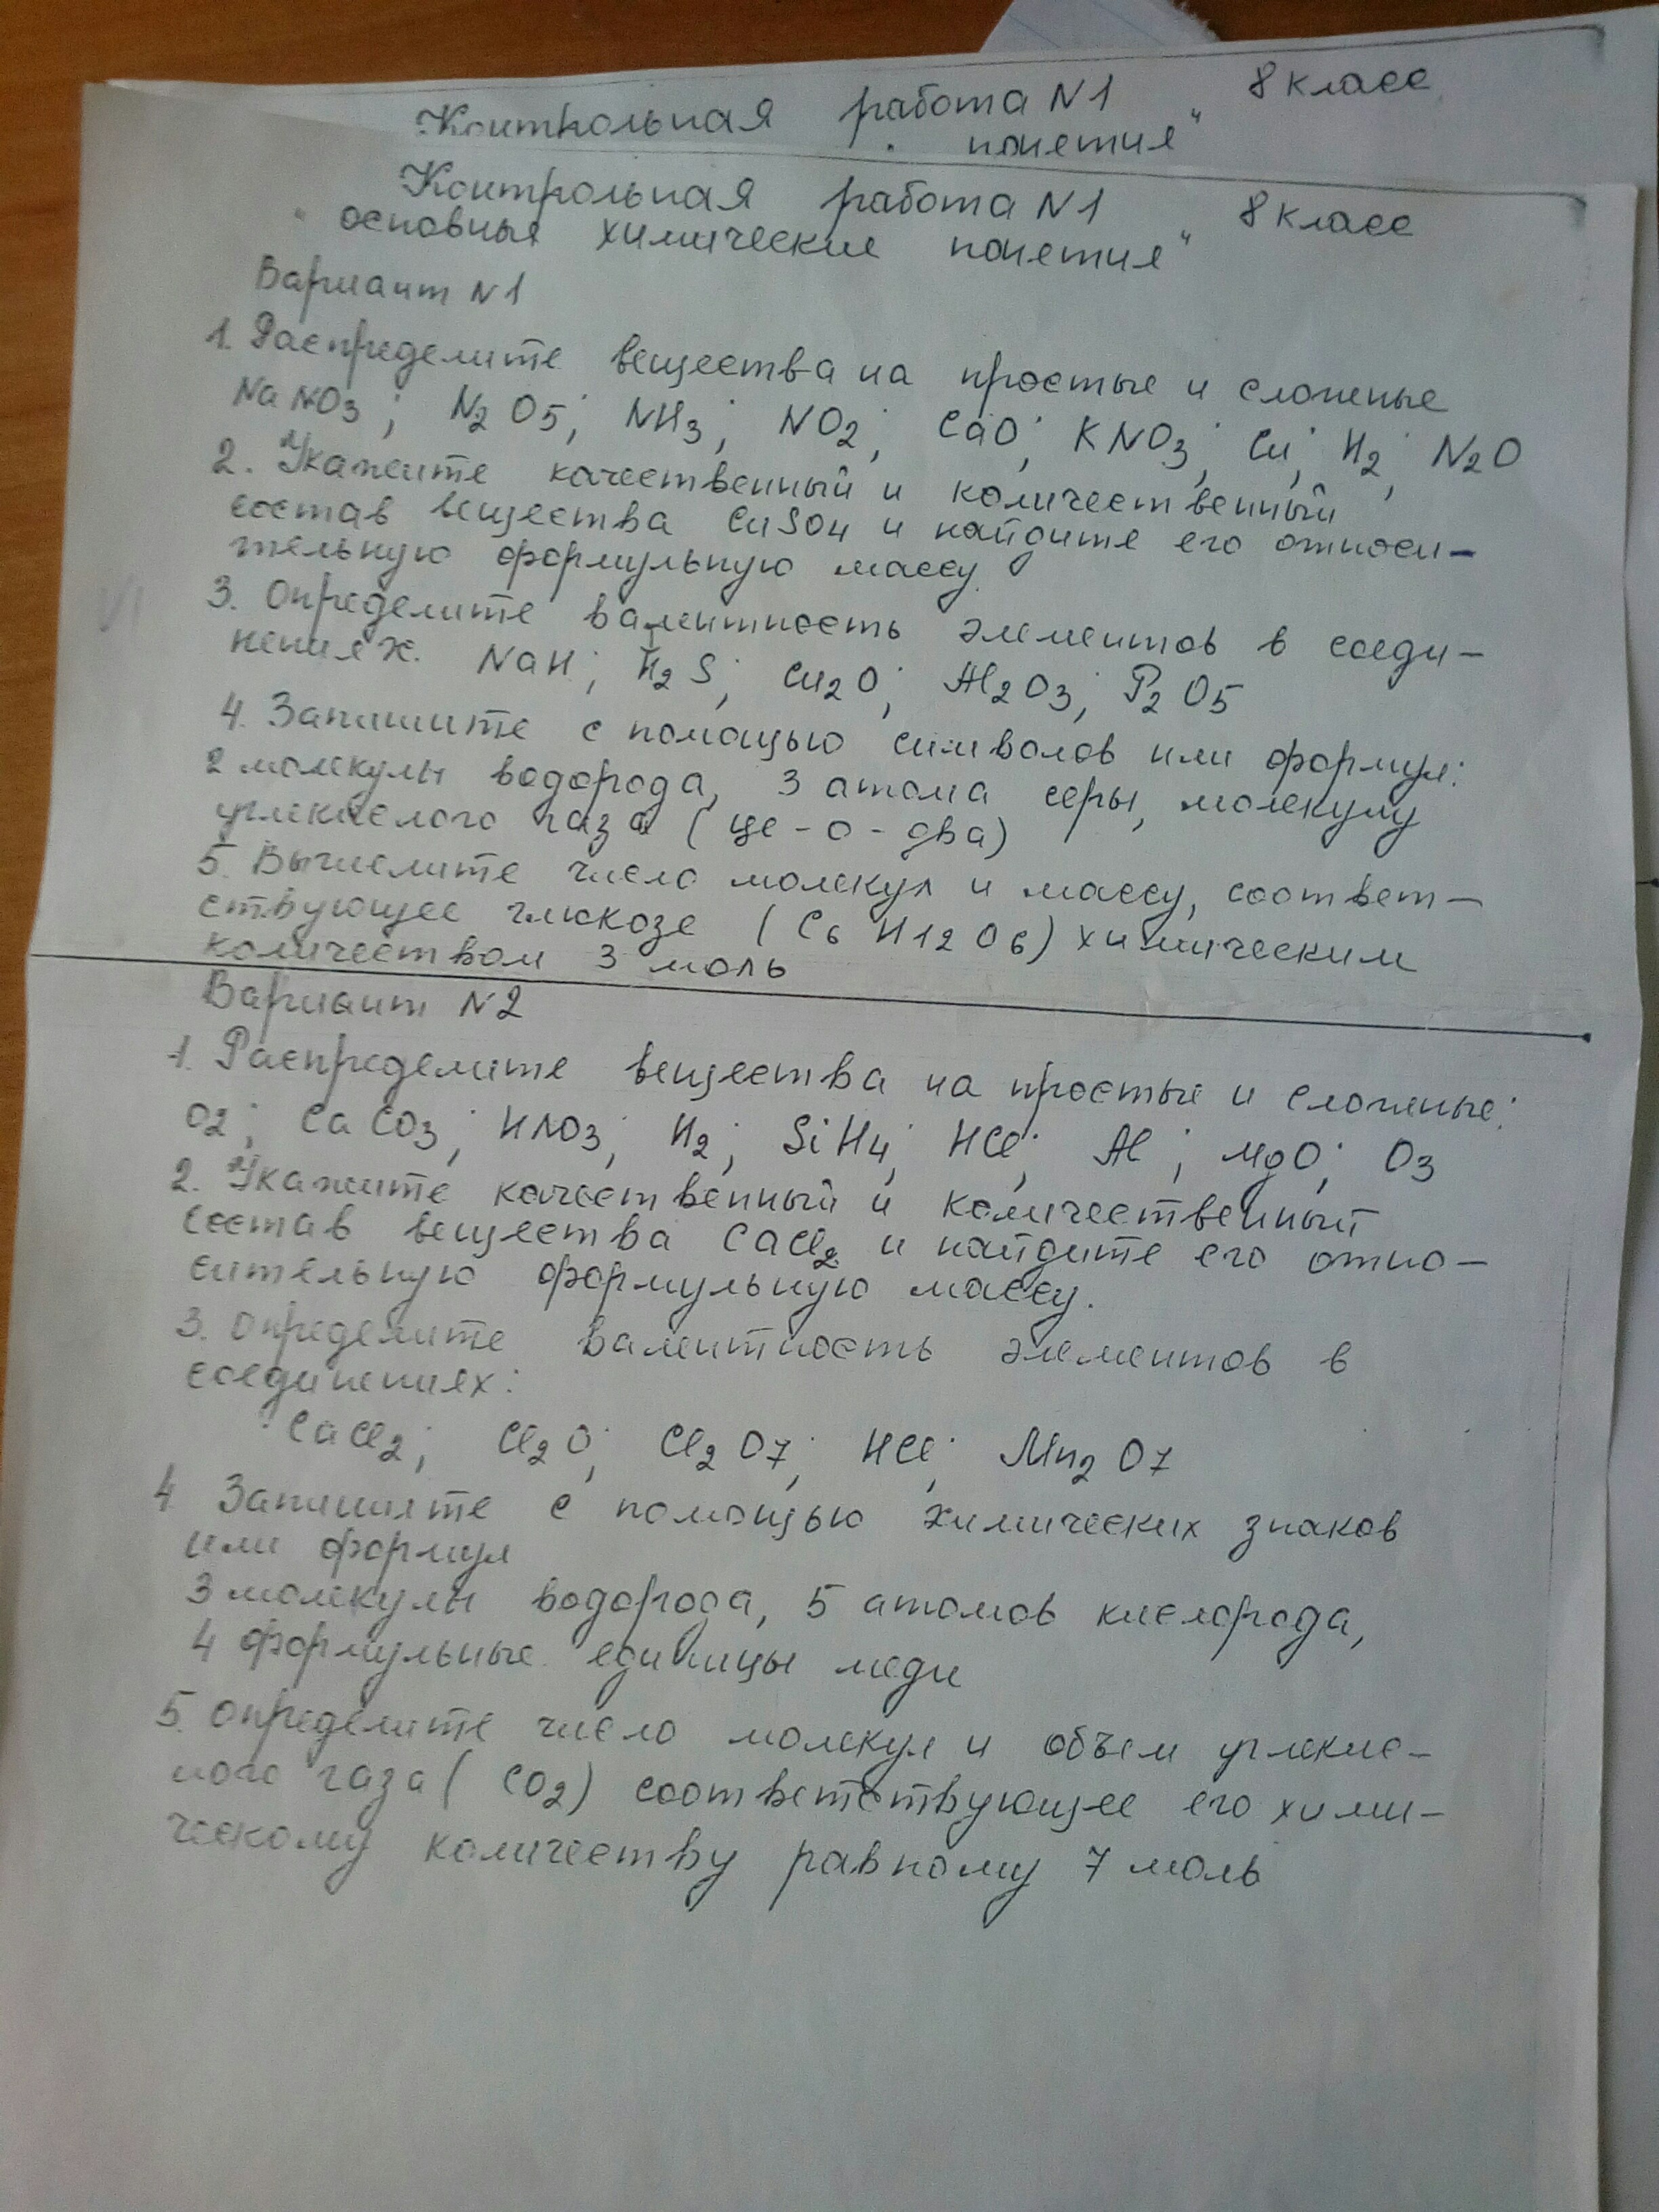 Контрольная работа N1 8 класс
понетия"
Контрольная работа N1 8 класс
"основныя химические понетия"
Вариант N1
1. Распределите вещества на простые и сложеные
NaNO3; N2O5; NH3; NO2; CaO; KNO3; Cu; H2; N2O
2. Укажите качественный и количественный
состав вещества CuSO4 и найдите его относи-
тельную формульную массу
3. Определите валентность элементов в соеди-
нениях. NaH; H2S; Cu2O; Al2O3; P2O5
4. Запишите с помощью символов или формул:
2 молекулы водорода, 3 атома серы, молекулу
углекислого газа (це-о-два)
5. Вычислите число молекул и массу, соответ-
ствующее глюкозе (C6H12O6) химическим
количеством 3 моль
Вариант N2
1. Распределите вещества на простые и сложеные:
O2; CaCO3; HNO3; H2; SiH4; HCl; Al; MgO; O3
2. Укажите качественный и количественный
состав вещества CaCl2 и найдите его отно-
сительную формульную массу.
3. Определите валентность элементов в
соединениях:
CaCl2; Cl2O; Cl2O7; HCl; Mn2O7
4 Запишите с помощью химических знаков
или формул
3 молекулы водорода, 5 атомов кислорода,
4 формульные единицы меди
5. Определите число молекул и объем углекис-
лого газа (CO2) соответствующее его хими-
ческому количеству равному 7 моль